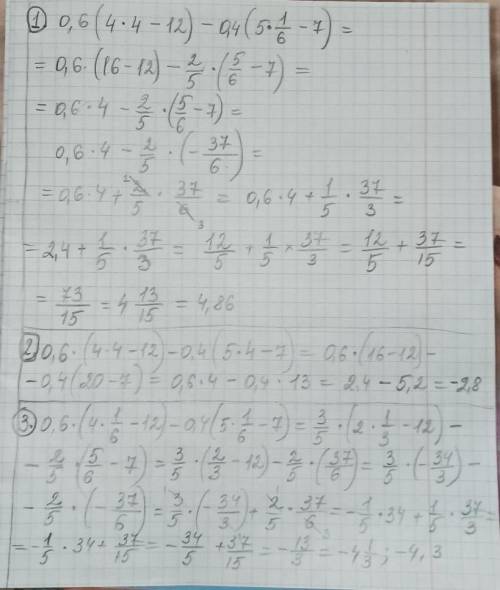 ① 0,6(4·4-12)-0,4(5·1/6-7)=
=0,6·(16-12)-2/5·(5/6-7)=
=0,6·4-2/5·(5/6-7)=
0,6·4-2/5·(-37/6)=
=0,6·4+2/5·37/6=0,6·4+1/5·37/3=
=2,4+1/5·37/3=12/5+1/5×37/3=12/5+37/15=
=73/15=4 13/15=4,86
2. 0,6·(4·4-12)-0,4(5·4-7)=0,6·(16-12)-
-0,4(20-7)=0,6·4-0,4·13=2,4-5,2=-2,8
3. 0,6·(4·1/6-12)-0,4(5·1/6-7)=3/5·(2·1/3-12)-
-2/5·(5/6-7)=3/5·(2/3-12)-2/5·(37/6)=3/5·(-34/3)-
-2/5·(-37/6)=3/5·(-34/3)+2/5·37/6=-1/5·34+1/5·37/3=
=-1/5·34+37/15=-34/5+37/15=-13/3=-4 1/3; -4,3